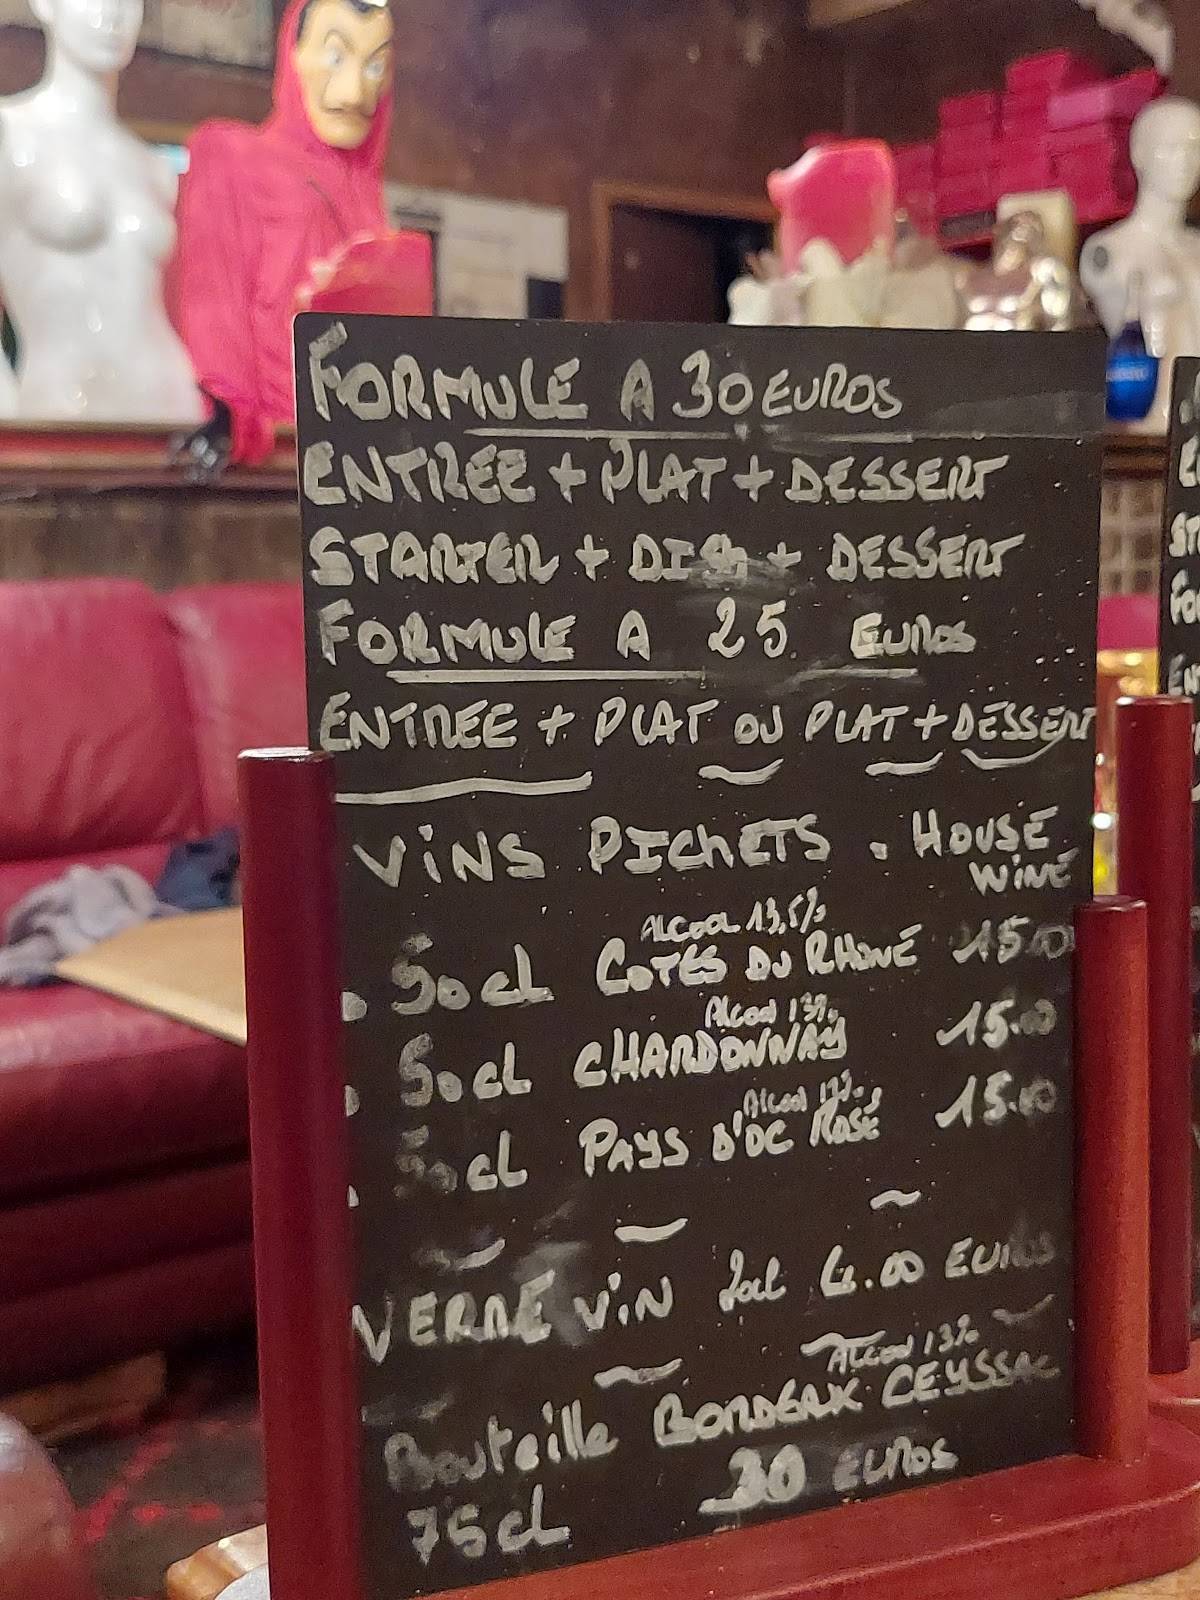 FORMULE A 30 EUROS
ENTREE + PLAT + DESSERT
STARTER + DISH + DESSERT
FORMULE A 25 EUROS
ENTREE + PLAT OU PLAT + DESSERT
VINS PICHETS . HOUSE
WINE
Alcool 13,5%
. 50 cl COTES DU RHONE 15.00
Alcool 13%
. 50 cl CHARDONNAY 15.00
Alcool
. 50 cl PAYS D'OC ROSÉ 15.00
VERRE VIN 4.00 EUROS
Alcool 13%
Bouteille BORDEAUX CEYSSAC
75cl 30 EUROS